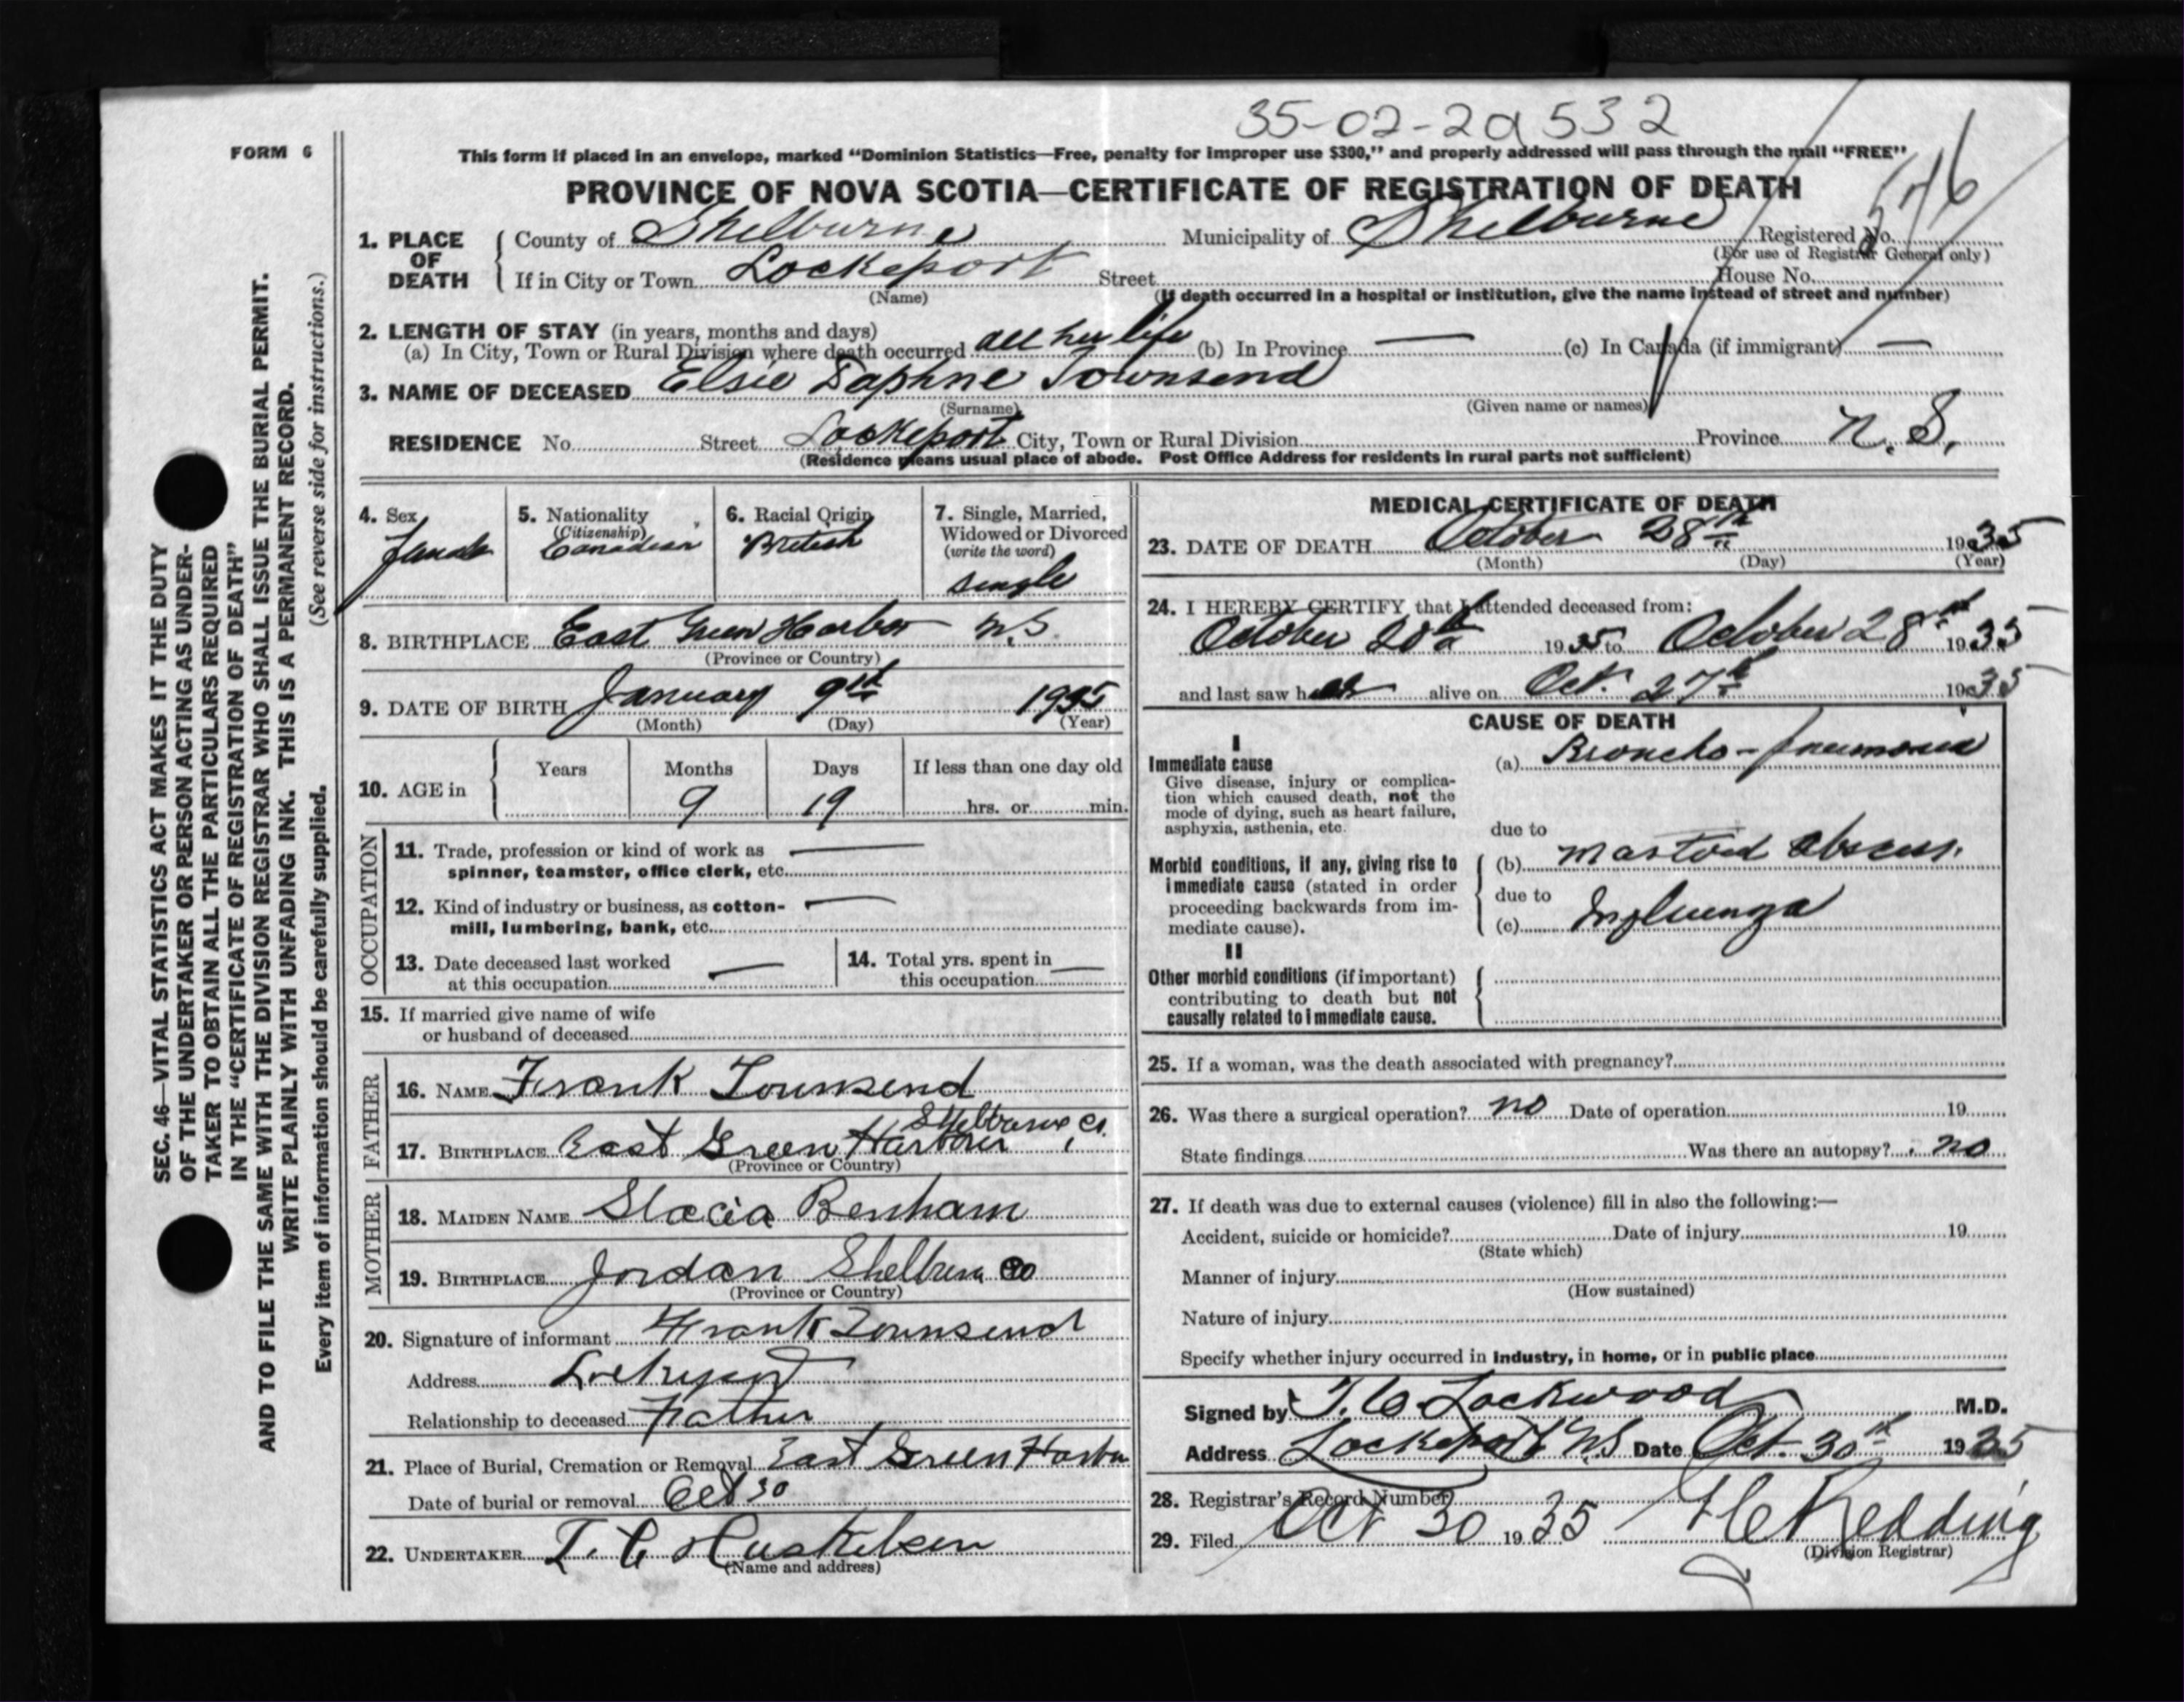 35-02-2a 532
FORM 6
This form if placed in an envelope, marked “Dominion Statistics—Free, penalty for improper use $300,” and properly addressed will pass through the mail “FREE”
PROVINCE OF NOVA SCOTIA—CERTIFICATE OF REGISTRATION OF DEATH
576
1. PLACE OF DEATH
County of Shelburne Municipality of Shelburne Registered No.
(For use of Registrar General only)
If in City or Town Lockeport Street House No.
(Name) (If death occurred in a hospital or institution, give the name instead of street and number)
2. LENGTH OF STAY (in years, months and days)
(a) In City, Town or Rural Division where death occurred all her life (b) In Province — (c) In Canada (if immigrant) —
3. NAME OF DECEASED Elsie Daphne Townsend
(Surname) (Given name or names)
RESIDENCE No. Street Lockeport City, Town or Rural Division Province N.S.
(Residence means usual place of abode. Post Office Address for residents in rural parts not sufficient)
4. Sex
female
5. Nationality
(Citizenship)
Canadian
6. Racial Origin
British
7. Single, Married,
Widowed or Divorced
(write the word)
single
8. BIRTHPLACE East Green Harbor N.S.
(Province or Country)
9. DATE OF BIRTH January 9th 1935
(Month) (Day) (Year)
10. AGE in
Years Months Days If less than one day old
9 19 hrs. or min.
OCCUPATION
11. Trade, profession or kind of work as —
spinner, teamster, office clerk, etc.
12. Kind of industry or business, as cotton- —
mill, lumbering, bank, etc.
13. Date deceased last worked
at this occupation —
14. Total yrs. spent in
this occupation —
15. If married give name of wife
or husband of deceased
FATHER
16. NAME Frank Townsend
Shelburne Co.
17. BIRTHPLACE East Green Harbour
(Province or Country)
MOTHER
18. MAIDEN NAME Stacia Benham
19. BIRTHPLACE Jordan Shelburn Co
(Province or Country)
20. Signature of informant Frank Townsend
Address Lockeport
Relationship to deceased Father
21. Place of Burial, Cremation or Removal East Green Harbor
Date of burial or removal Oct 30
22. UNDERTAKER
(Name and address)
MEDICAL CERTIFICATE OF DEATH
23. DATE OF DEATH October 28th 1935
(Month) (Day) (Year)
24. I HEREBY CERTIFY that I attended deceased from:
October 20th 1935 to October 28th 1935
and last saw her alive on Oct. 27th 1935
CAUSE OF DEATH
I
Immediate cause
Give disease, injury or complica-
tion which caused death, not the
mode of dying, such as heart failure,
asphyxia, asthenia, etc.
(a) Broncho-pneumonia
due to
Morbid conditions, if any, giving rise to
immediate cause (stated in order
proceeding backwards from im-
mediate cause).
(b) Mastoid abscess.
due to
(c) Influenza
II
Other morbid conditions (if important)
contributing to death but not
causally related to immediate cause.
25. If a woman, was the death associated with pregnancy?
26. Was there a surgical operation? no Date of operation 19
State findings Was there an autopsy? no
27. If death was due to external causes (violence) fill in also the following:—
Accident, suicide or homicide? Date of injury 19
(State which)
Manner of injury
(How sustained)
Nature of injury
Specify whether injury occurred in industry, in home, or in public place
Signed by T. C. Lockwood M.D.
Address Lockeport N.S Date Oct. 30th 1935
28. Registrar's Record Number
29. Filed Oct 30 1935 Redding
(Division Registrar)
SEC. 46—VITAL STATISTICS ACT MAKES IT THE DUTY
OF THE UNDERTAKER OR PERSON ACTING AS UNDER-
TAKER TO OBTAIN ALL THE PARTICULARS REQUIRED
IN THE “CERTIFICATE OF REGISTRATION OF DEATH”
AND TO FILE THE SAME WITH THE DIVISION REGISTRAR WHO SHALL ISSUE THE BURIAL PERMIT.
WRITE PLAINLY WITH UNFADING INK. THIS IS A PERMANENT RECORD.
Every item of information should be carefully supplied. (See reverse side for instructions.)